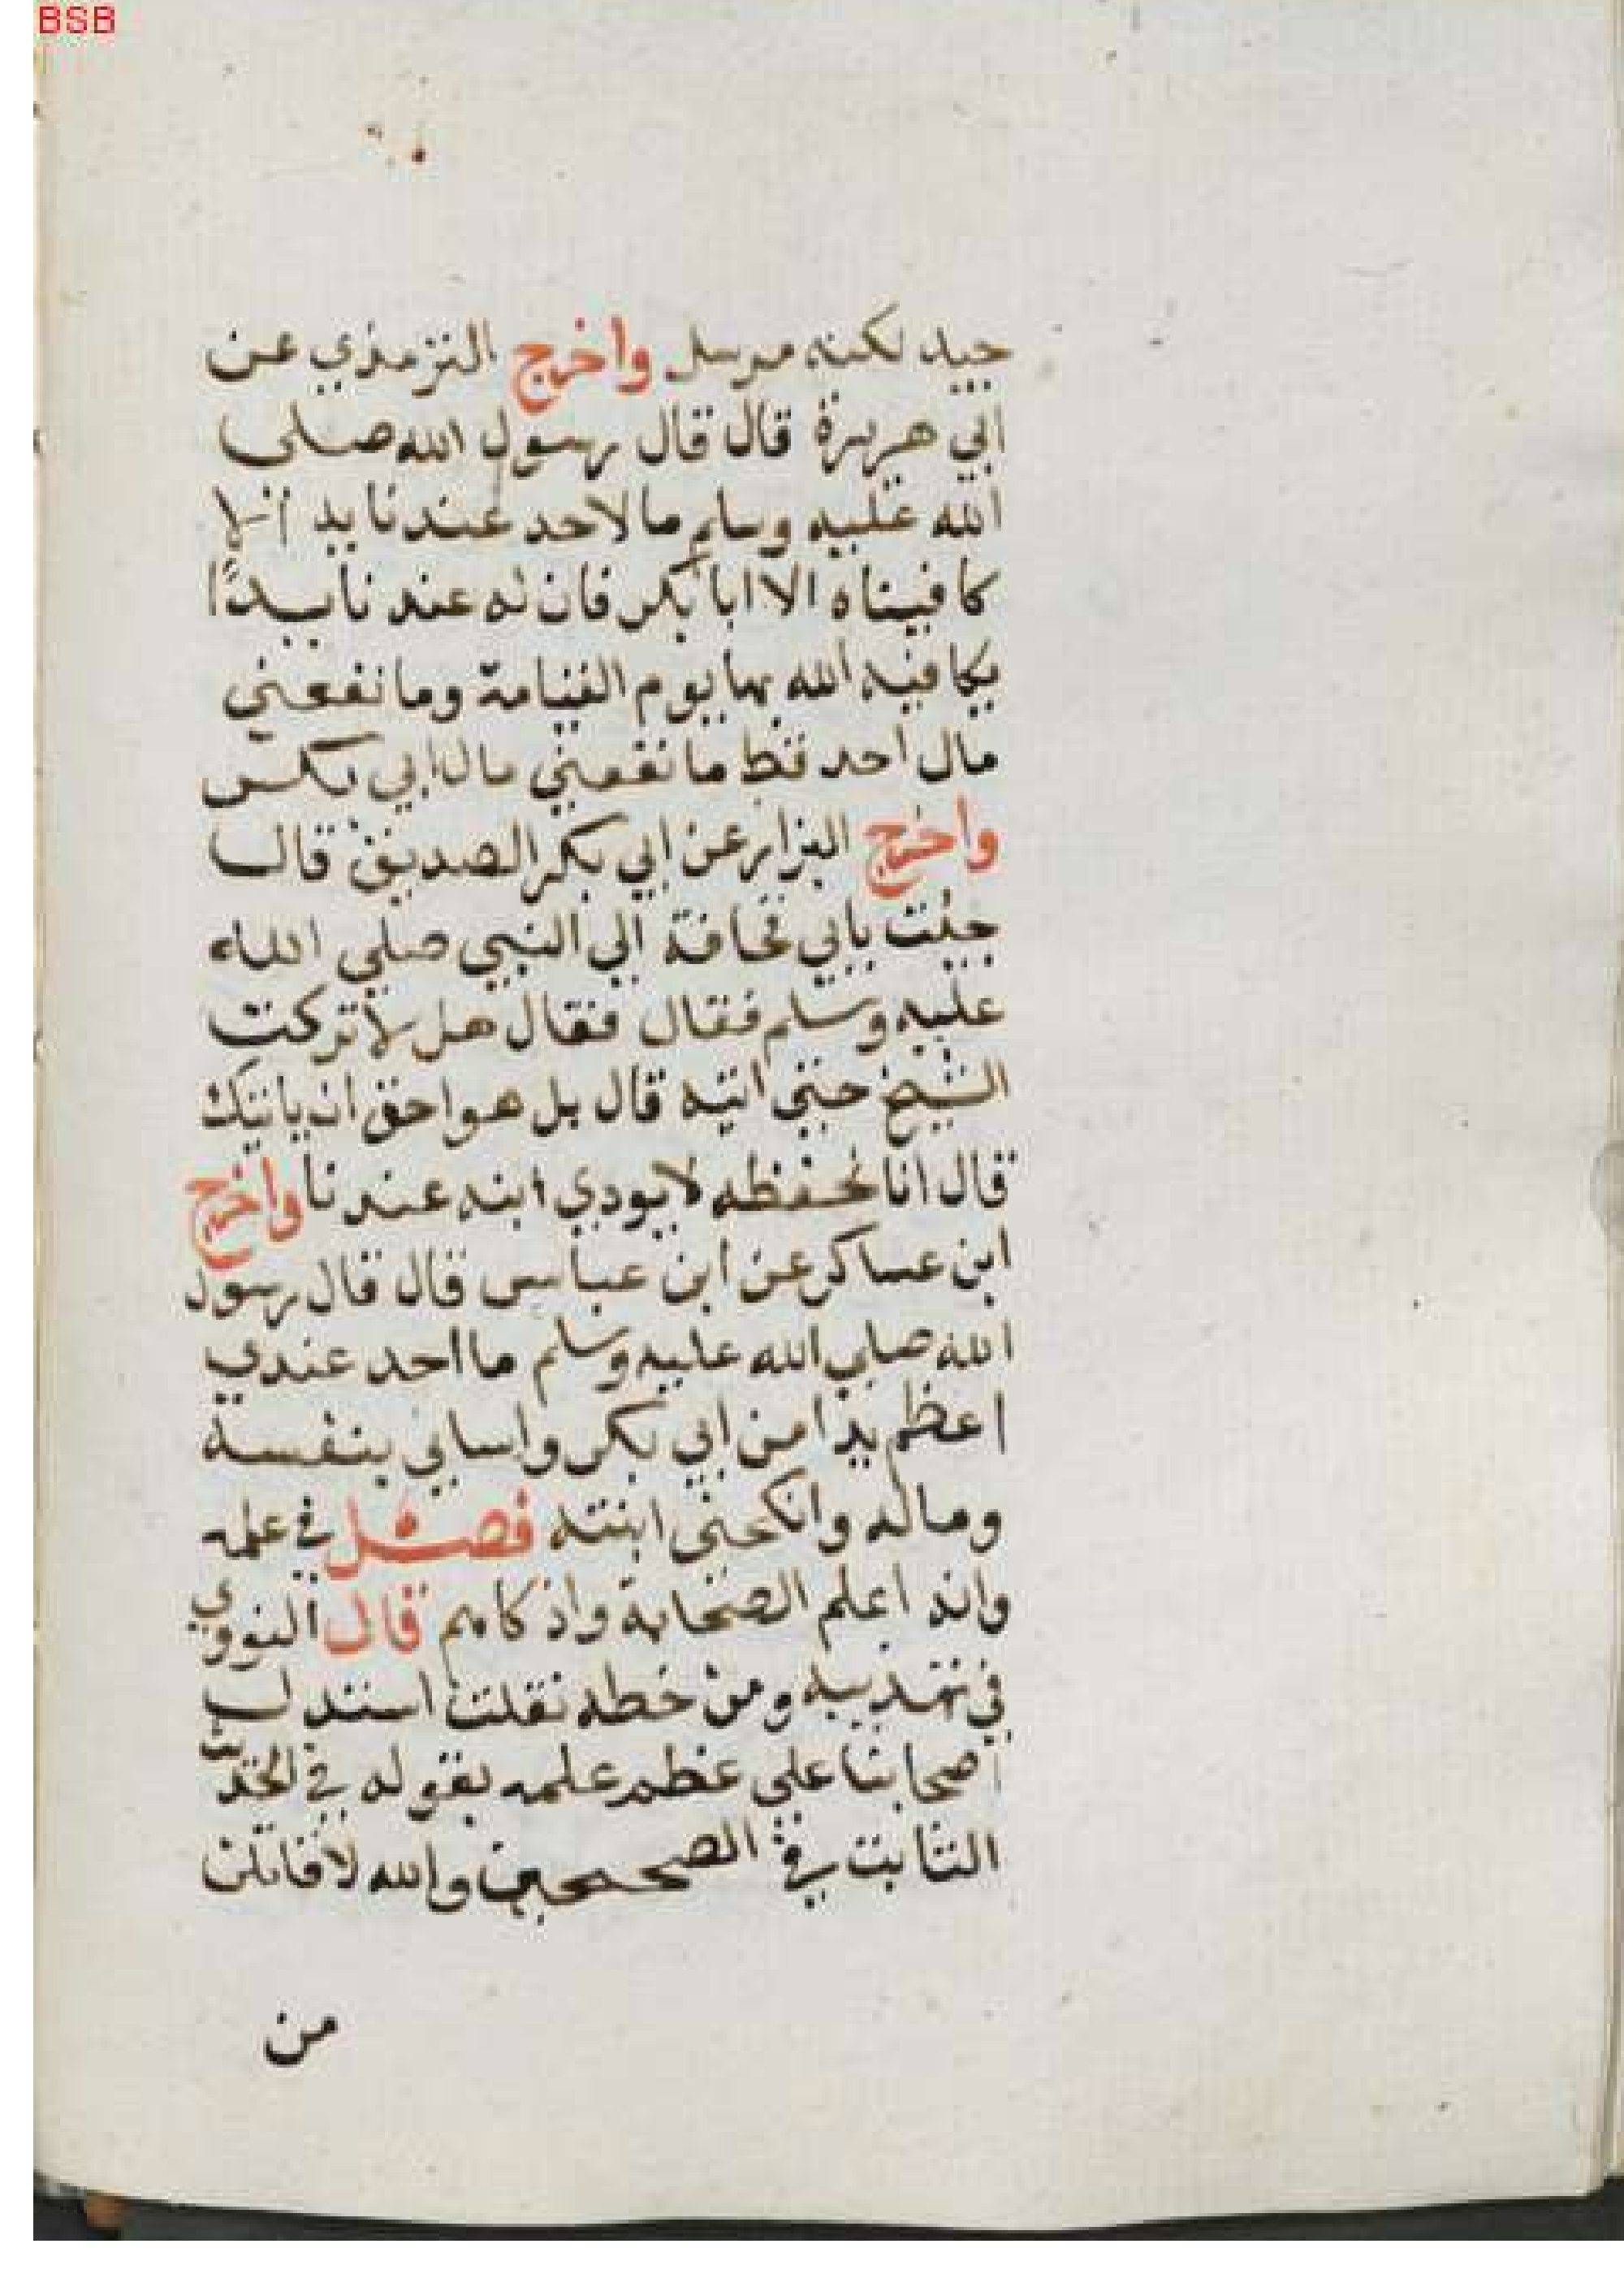 BSB
جيد لكنه مرسل واخرج الترمذي عن
ابي هريرة قال قال رسول الله صلى
الله عليه وسلم ما لاحد عندنا يد الا
كافيناه الا ابا بكر فان له عندنا يدًا
يكافيه الله بها يوم القيامة وما نفعني
مال احد قط ما نفعني مال ابي بكر
واخرج البزار عن ابي بكر الصديق قال
جئت بابي قحافة الي النبي صلي الله
عليه وسلم فقال فقال هل لا تركت
الشيخ حتي اتيه قال بل هو احق ان ياتيك
قال انا نحفظه لايودي ابنه عندنا واخرج
ابن عساكر عن ابن عباس قال قال رسول
الله صلي الله عليه وسلم ما احد عندي
اعظم يدا من ابي بكر واساني بنفسة
وماله وانكحني ابنته فصل في علمه
وانه اعلم الصحابة واذكاهم قال النووي
في تهذيبه ومن خطه نقلت استدل
اصحابنا علي عظم علمه بقوله في الحديث
الثابت في الصحيحين والله لاقاتلن
من